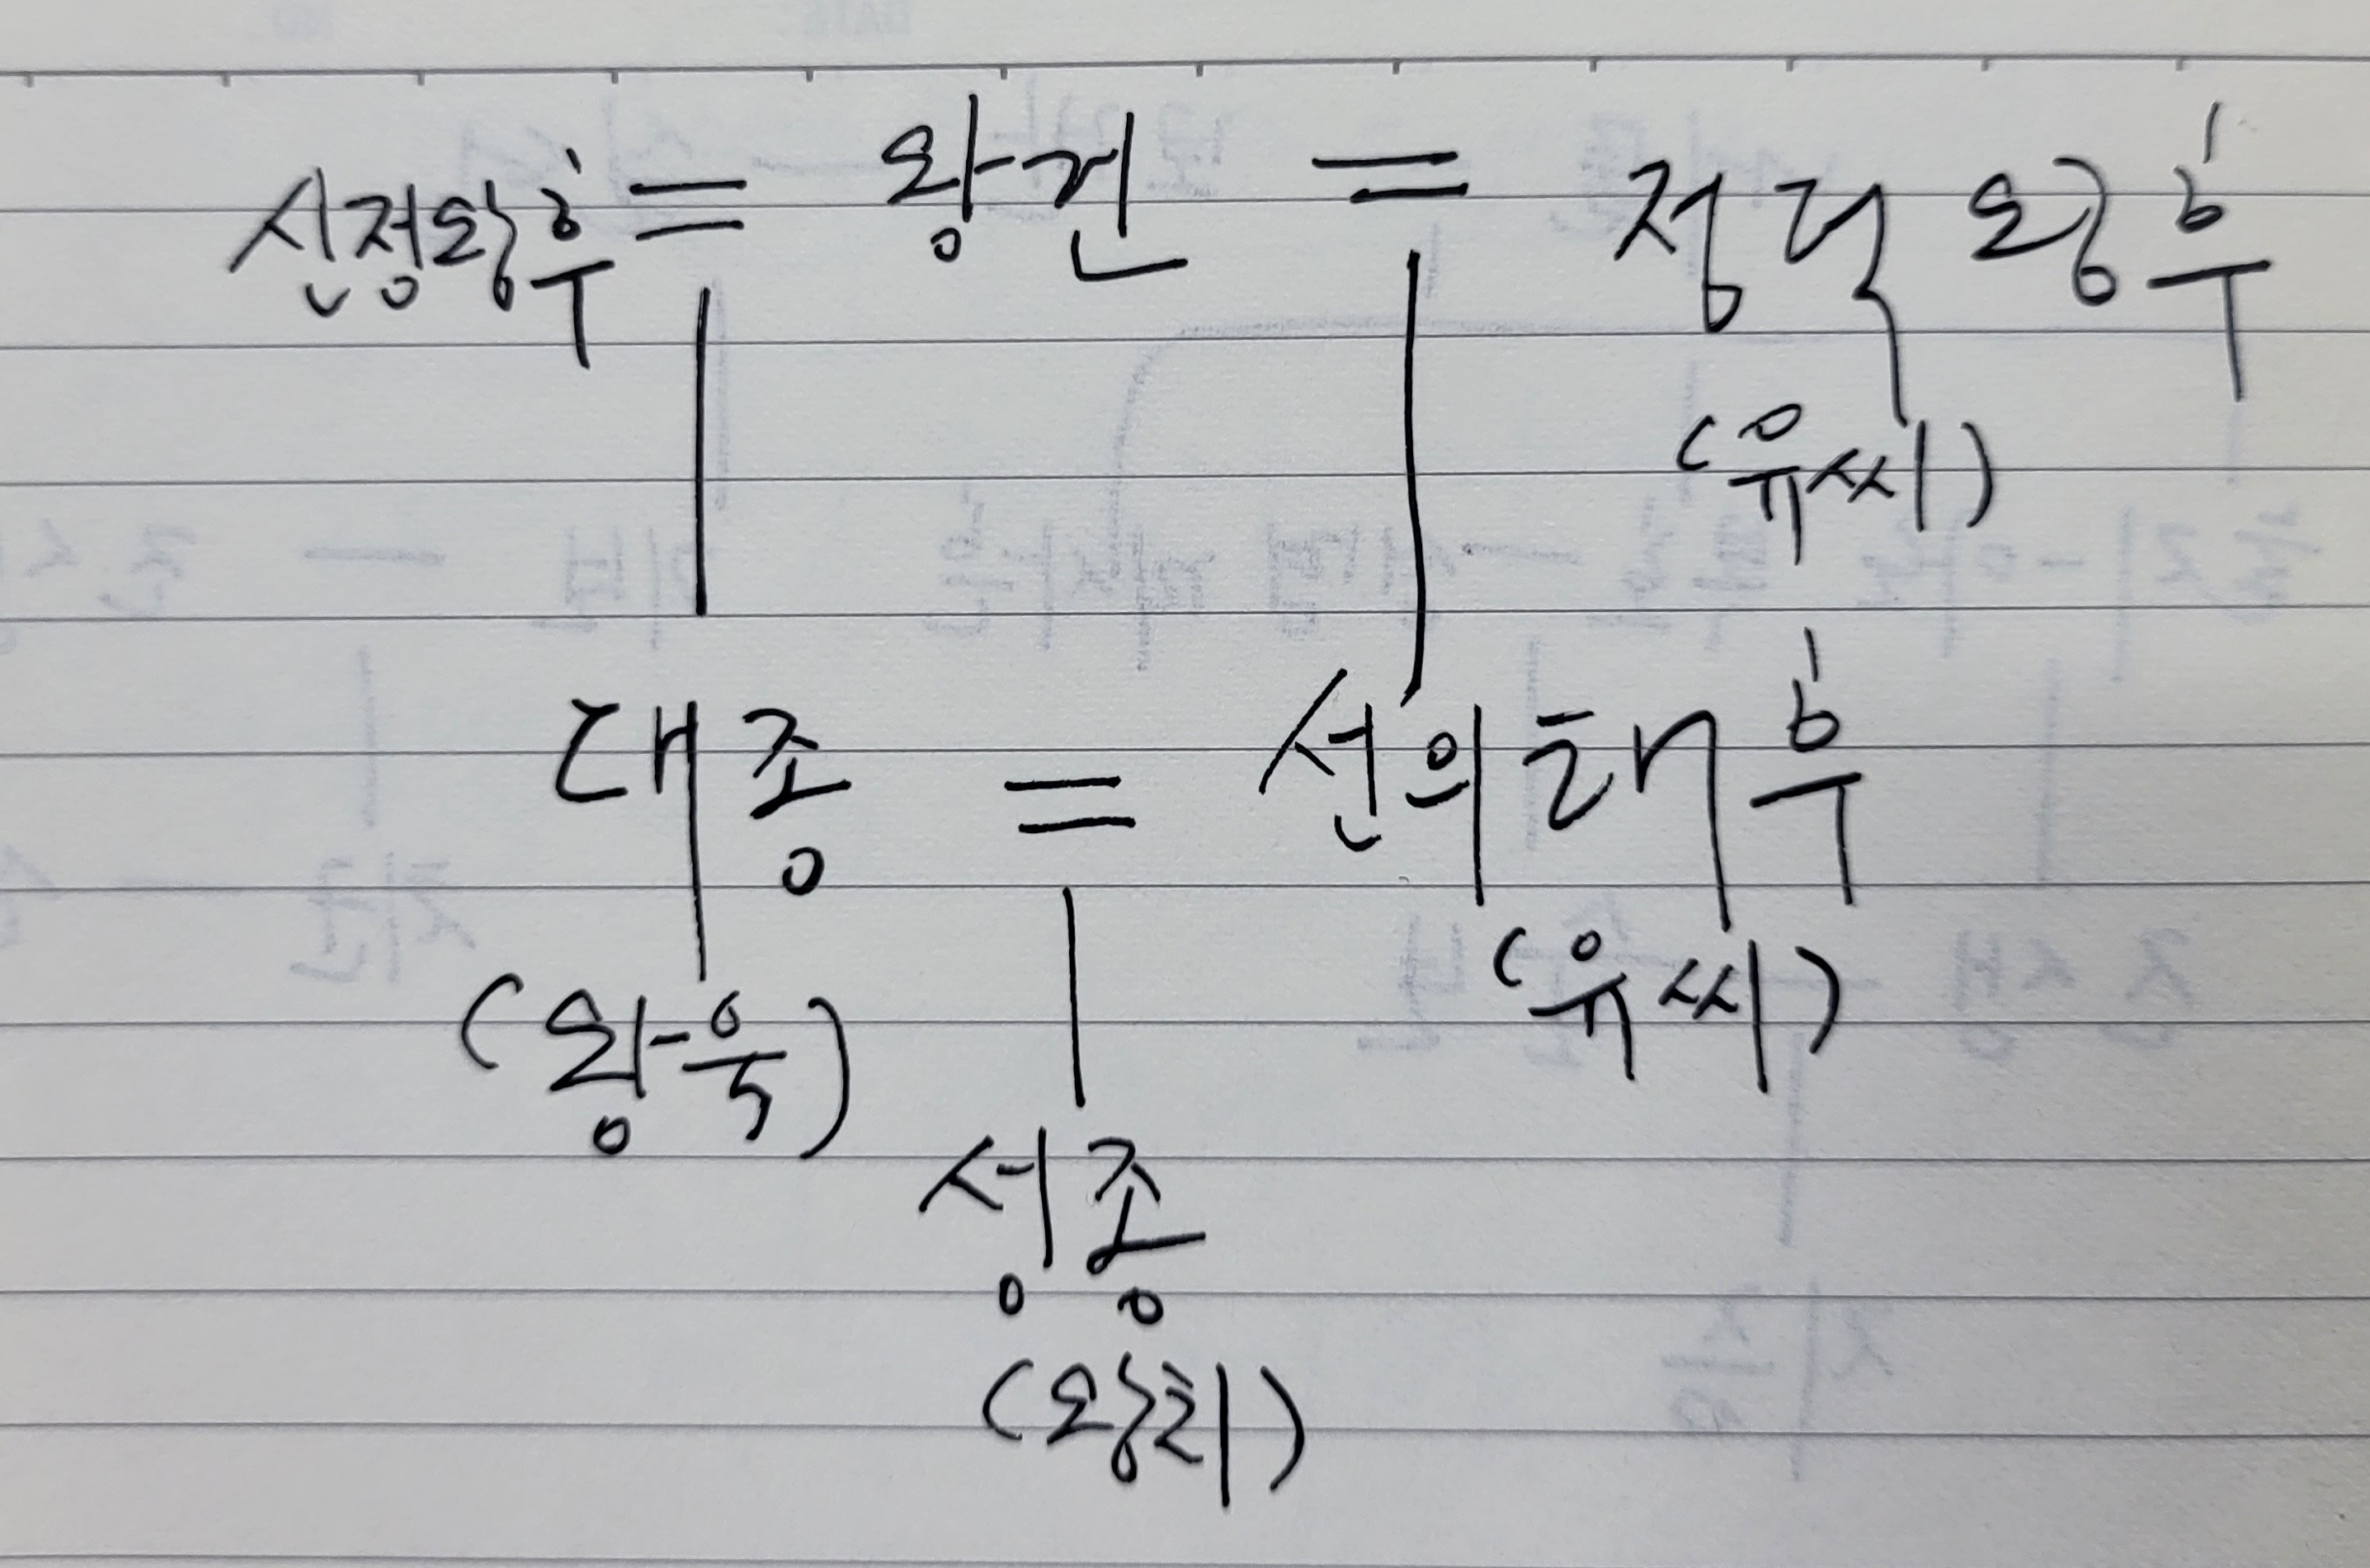 신정왕후 = 왕건 = 정덕왕후
(유씨)
대종 = 선의태후
(왕욱) (유씨)
성종
(왕치)